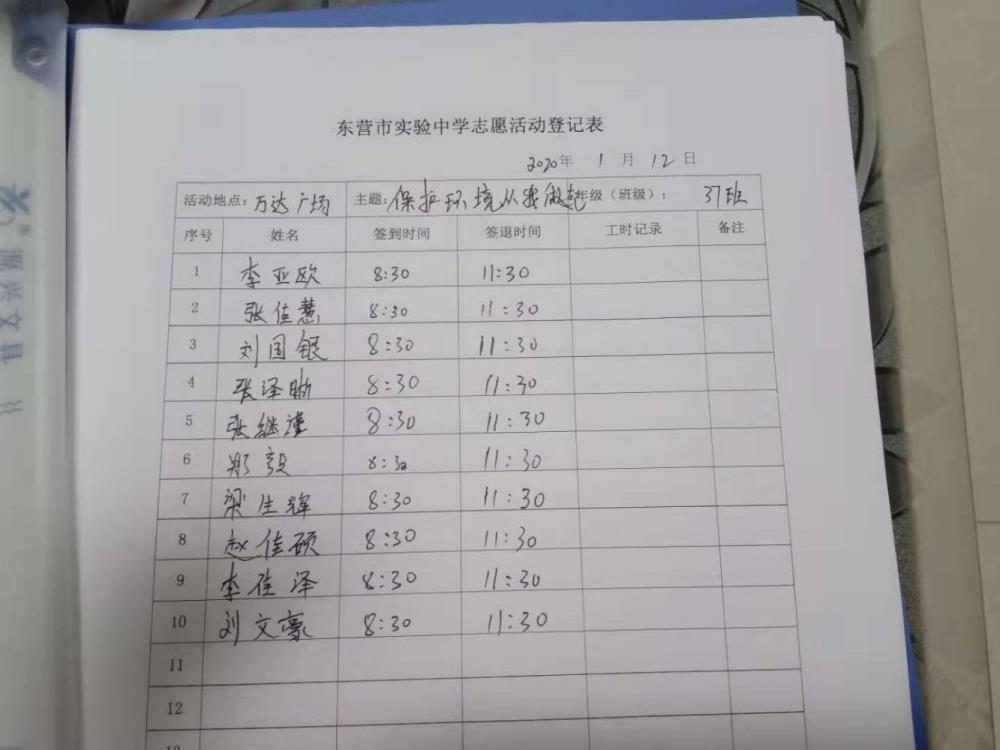 东营市实验中学志愿活动登记表
2020年 1 月 12 日
活动地点: 万达广场 主题: 保护环境从我做起 年级(班级): 37班
序号 姓名 签到时间 签退时间 工时记录 备注
1 李亚欧 8:30 11:30
2 张佳慧 8:30 11:30
3 刘国银 8:30 11:30
4 张泽 8:30 11:30
5 张继 8:30 11:30
6 郑毅 8:30 11:30
7 梁生辉 8:30 11:30
8 赵佳硕 8:30 11:30
9 李佳泽 8:30 11:30
10 刘文豪 8:30 11:30
11
12
源兴文具